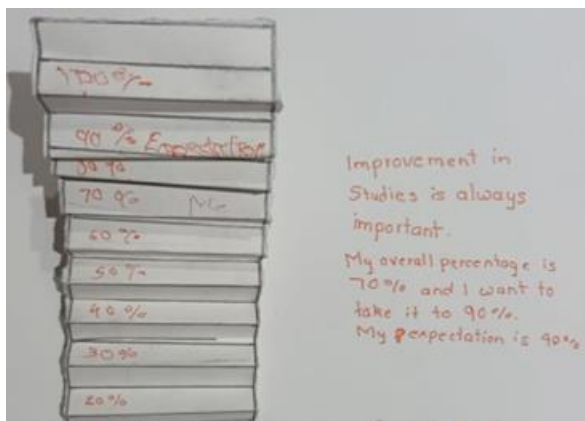 100%
90% Expectation
80%
70% Me
60%
50%
40%
30%
20%
Improvement in
Studies is always
important.
My overall percentage is
70% and I want to
take it to 90%.
My expectation is 90%